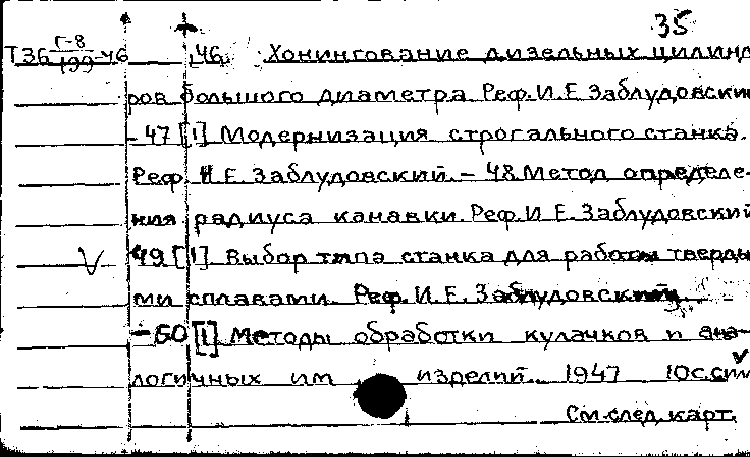 35
Т36 Г-8/199-46 46. Хонингование дизельных цилинд
ров большого диаметра. Реф. И.Е. Заблудовский
- 47 [1] Модернизация строгального станка.
Реф. И.Е. Заблудовский. - 48. Метод определе-
ния радиуса канавки. Реф. И.Е. Заблудовский
49 [1] Выбор типа станка для работы тверды
ми сплавами. Реф. И.Е. Заблудовский.
- 50 [1] Методы обработки кулачков и ана-
логичных им изделий. 1947 10с.
См. след. карт.